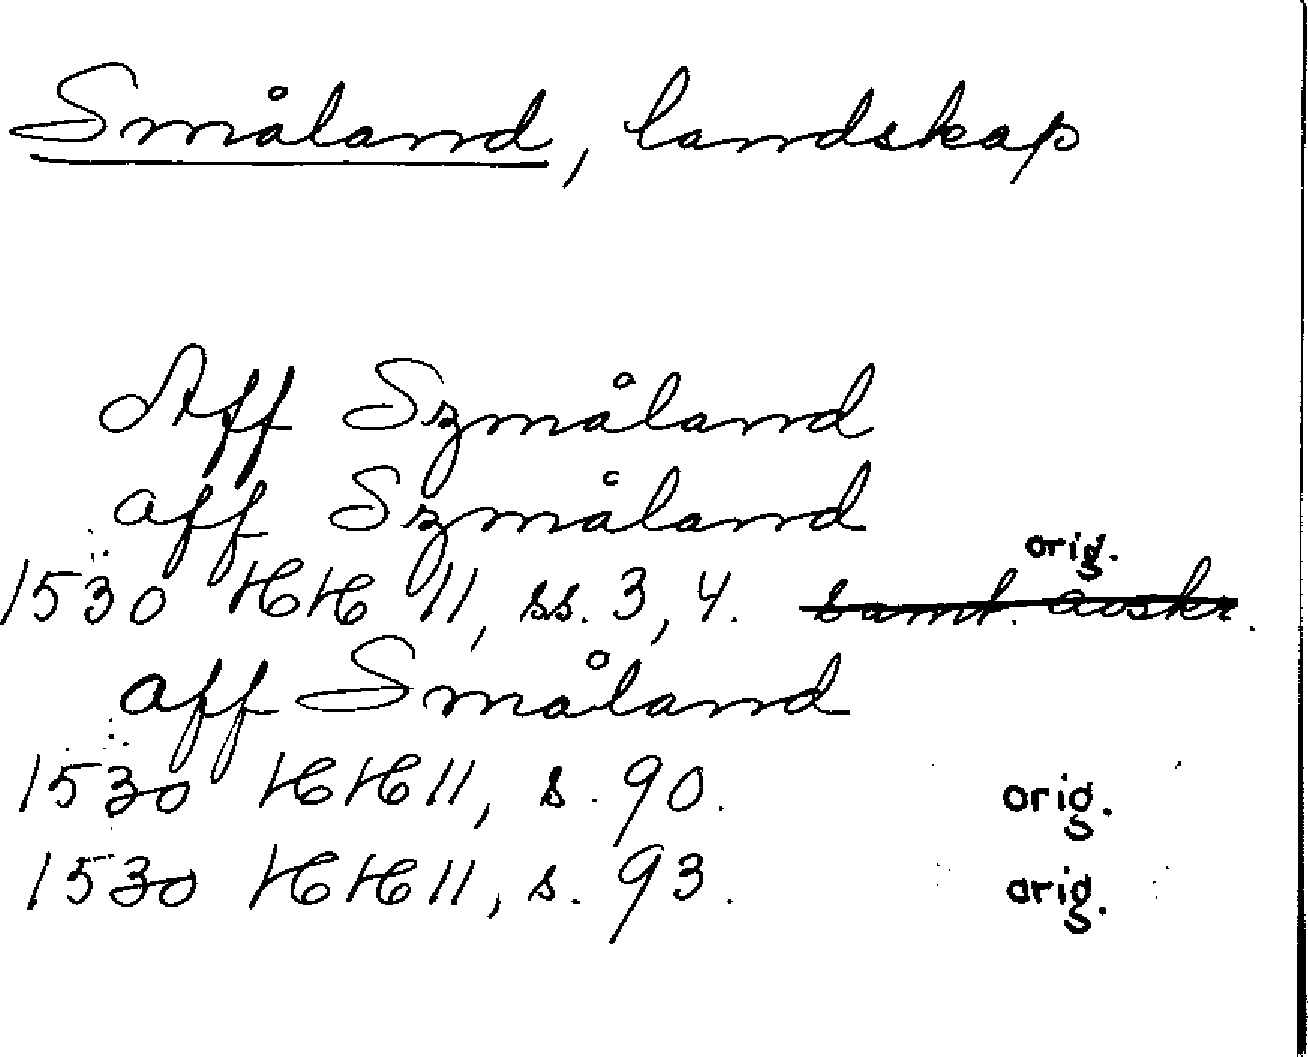 Småland, landskap
Aff Szmåland
aff Szmåland
orig.
1530 HH 11, ss. 3, 4. samt. avskr.
aff Småland
1530 HH 11, s. 90. orig.
1530 HH 11, s. 93. orig.